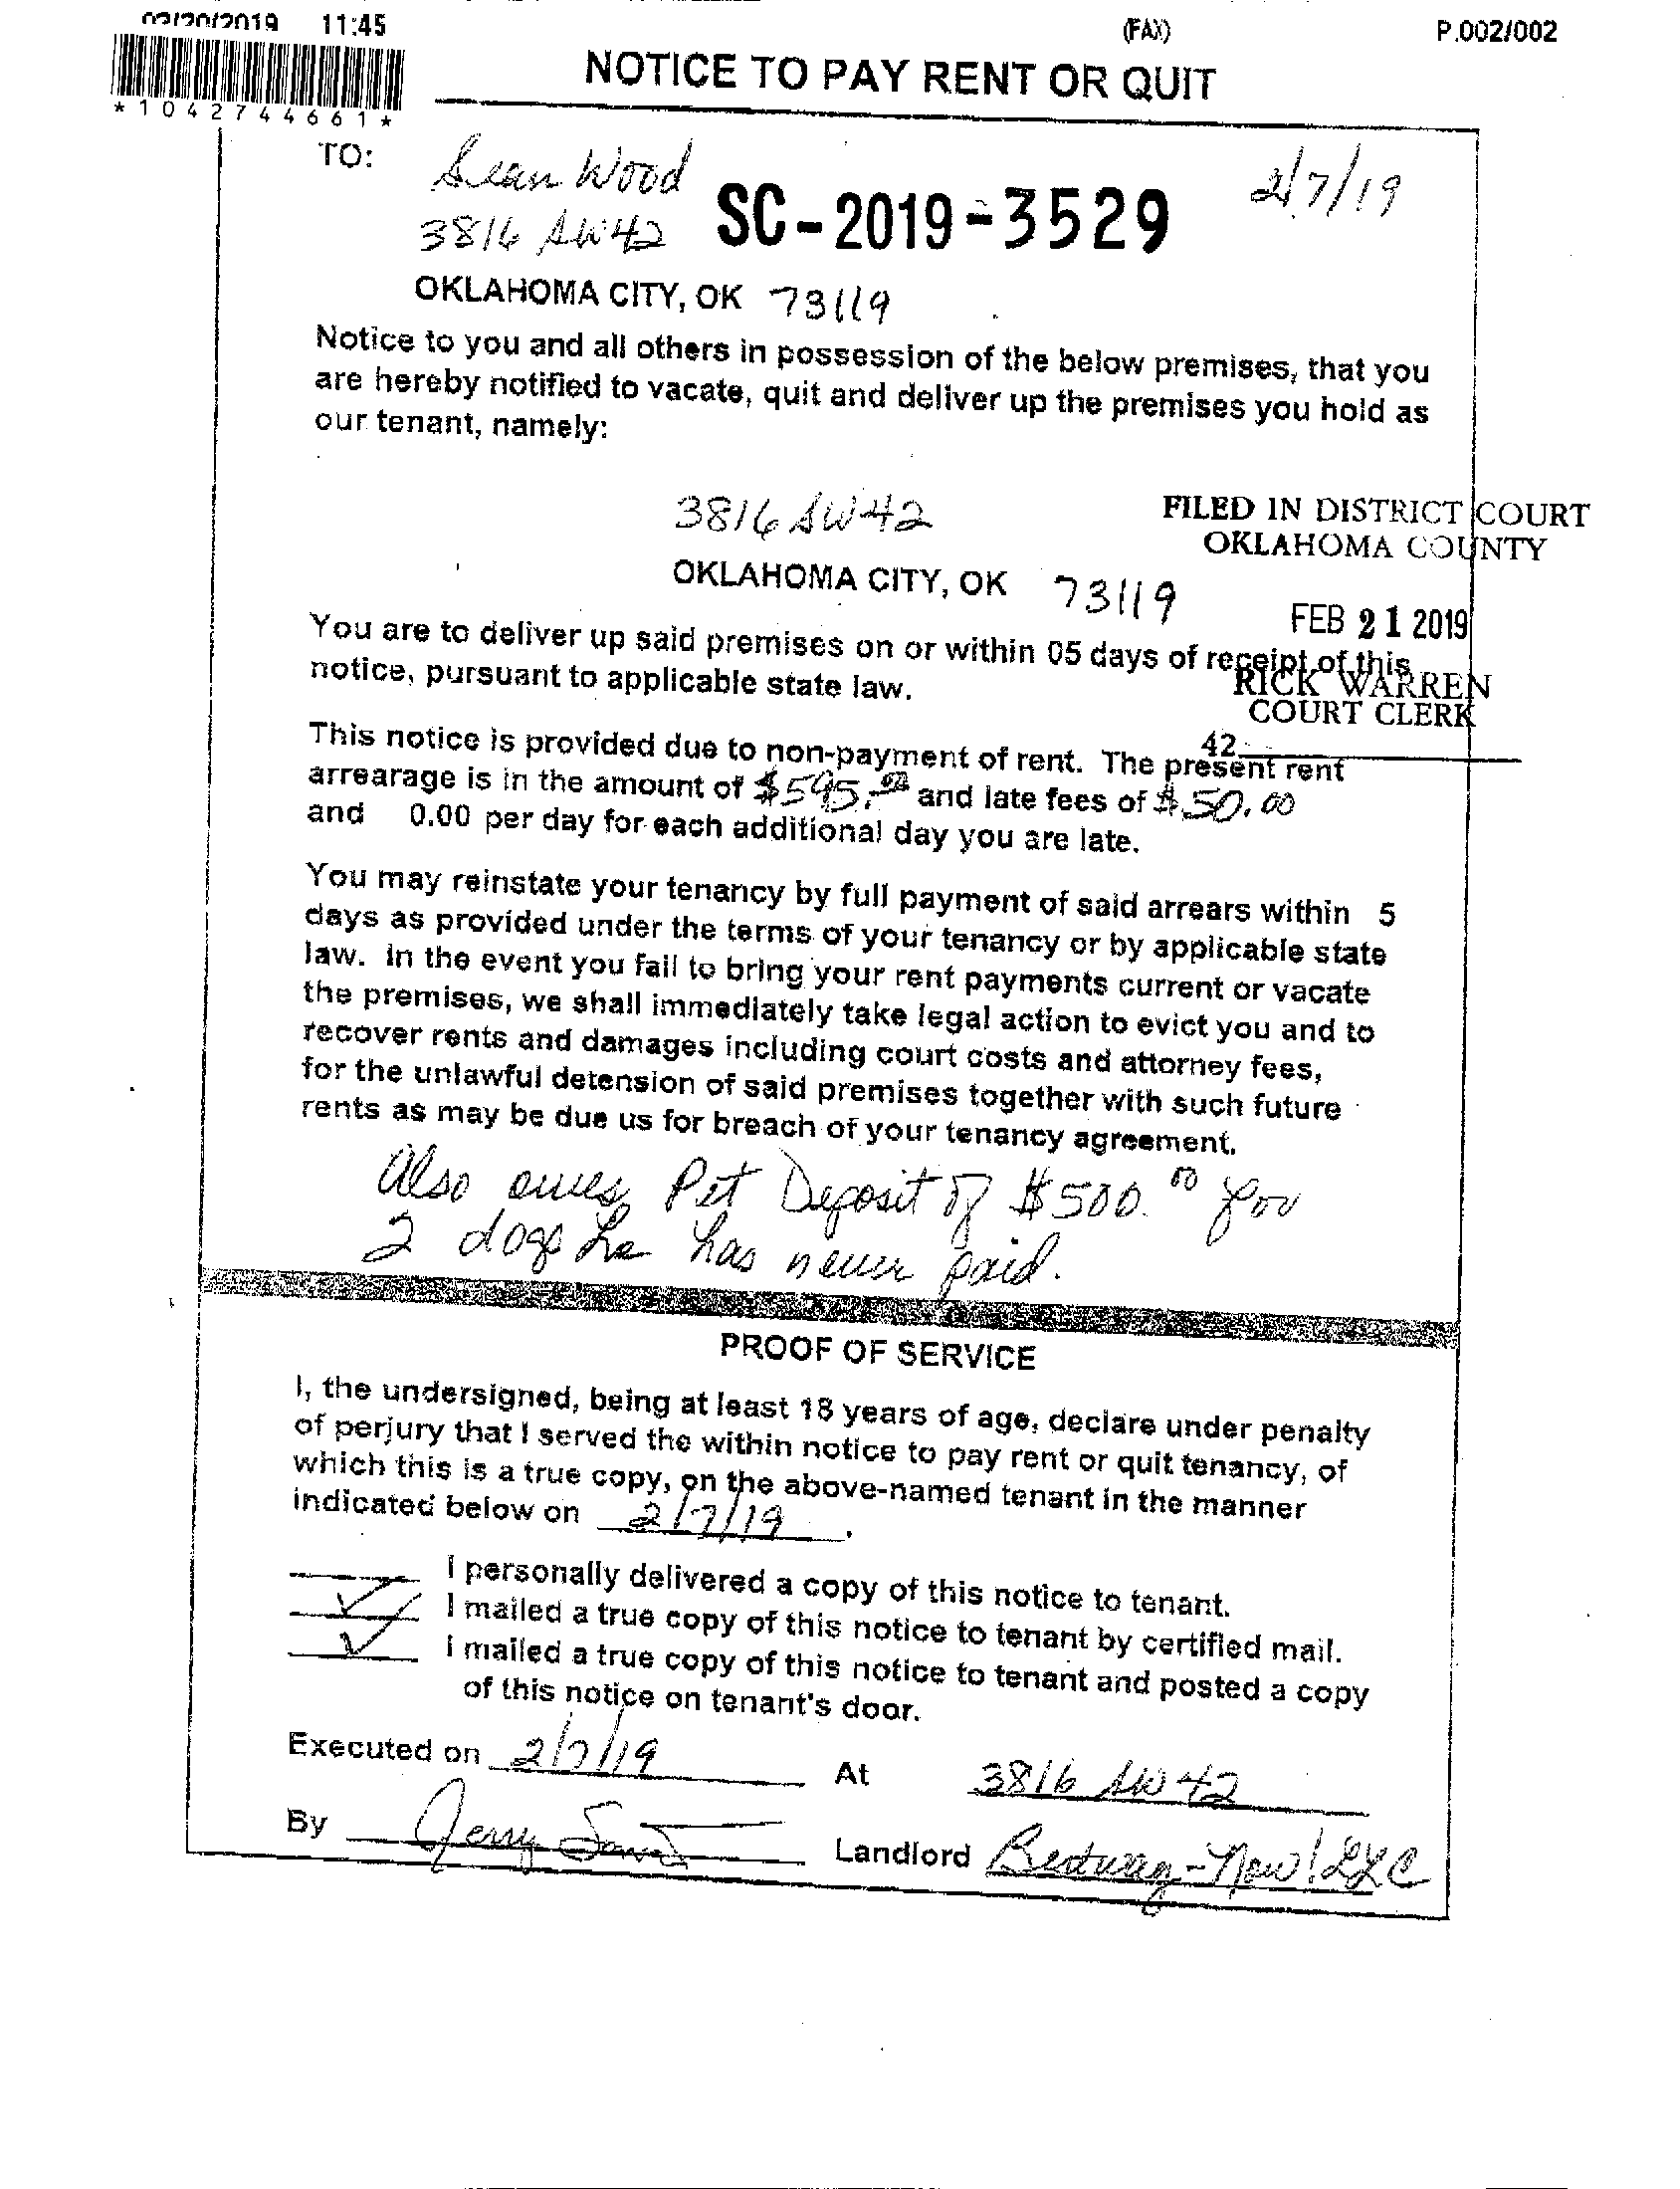 02/20/2019 11:45 (FAX) P.002/002
*1042744661*
NOTICE TO PAY RENT OR QUIT
TO: Sean Wood 2/7/19
3816 SW 42 SC-2019-3529
OKLAHOMA CITY, OK 73119
Notice to you and all others in possession of the below premises, that you
are hereby notified to vacate, quit and deliver up the premises you hold as
our tenant, namely:
3816 SW 42
OKLAHOMA CITY, OK 73119
FILED IN DISTRICT COURT
OKLAHOMA COUNTY
FEB 21 2019
RICK WARREN
COURT CLERK
42
You are to deliver up said premises on or within 05 days of receipt of this
notice, pursuant to applicable state law.
This notice is provided due to non-payment of rent. The present rent
arrearage is in the amount of $595.00 and late fees of $50.00
and 0.00 per day for each additional day you are late.
You may reinstate your tenancy by full payment of said arrears within 5
days as provided under the terms of your tenancy or by applicable state
law. In the event you fail to bring your rent payments current or vacate
the premises, we shall immediately take legal action to evict you and to
recover rents and damages including court costs and attorney fees,
for the unlawful detension of said premises together with such future
rents as may be due us for breach of your tenancy agreement.
Also owes Pet Deposit of $500.00 for
2 dogs he has never paid.
PROOF OF SERVICE
I, the undersigned, being at least 18 years of age, declare under penalty
of perjury that I served the within notice to pay rent or quit tenancy, of
which this is a true copy, on the above-named tenant in the manner
indicated below on 2/7/19.
I personally delivered a copy of this notice to tenant.
✓ I mailed a true copy of this notice to tenant by certified mail.
✓ I mailed a true copy of this notice to tenant and posted a copy
of this notice on tenant's door.
Executed on 2/7/19 At 3816 SW 42
By Jerry Landlord Bestway-Now! LLC